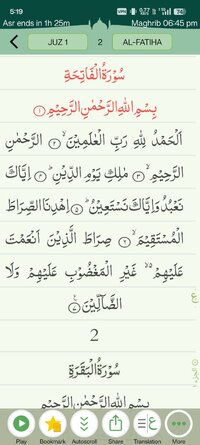 5:19
Asr ends in 1h 25m
Maghrib 06:45 pm
JUZ 1
2
AL-FATIHA
سُوْرَةُ الْفَاتِحَةِ
بِسْمِ اللهِ الرَّحْمٰنِ الرَّحِيْمِ ۝١
اَلْحَمْدُ لِلّٰهِ رَبِّ الْعٰلَمِيْنَ ۝٢ الرَّحْمٰنِ
الرَّحِيْمِ ۝٣ مٰلِكِ يَوْمِ الدِّيْنِ ۝٤ اِيَّاكَ
نَعْبُدُ وَاِيَّاكَ نَسْتَعِيْنُ ۝٥ اِهْدِنَا الصِّرَاطَ
الْمُسْتَقِيْمَ ۝٦ صِرَاطَ الَّذِيْنَ اَنْعَمْتَ
عَلَيْهِمْ غَيْرِ الْمَغْضُوْبِ عَلَيْهِمْ وَلَا
الضَّآلِّيْنَ ۝٧
2
سُوْرَةُ الْبَقَرَةِ
بِسْمِ اللهِ الرَّحْمٰنِ الرَّحِيْمِ
Play
Bookmark
Autoscroll
Share
Translation
More